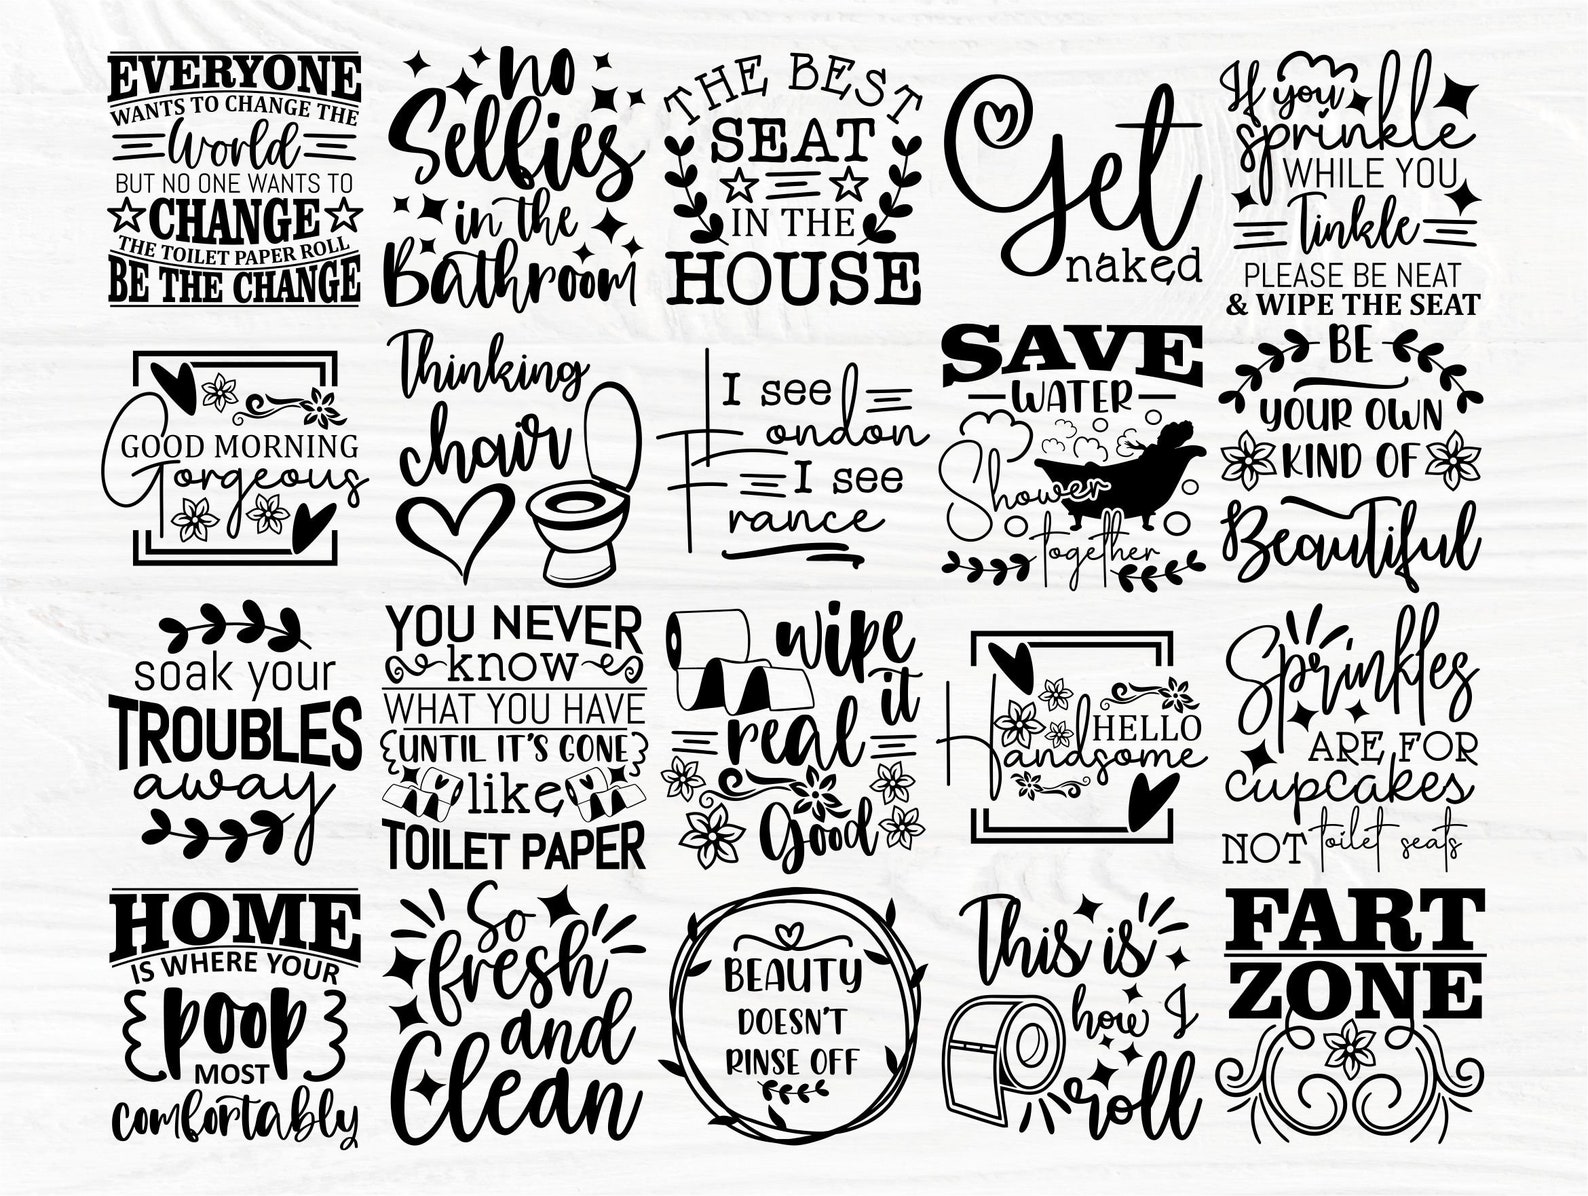 EVERYONE
WANTS TO CHANGE THE
World
BUT NO ONE WANTS TO
CHANGE
THE TOILET PAPER ROLL
BE THE CHANGE
no
Selfies
in the
Bathroom
THE BEST
SEAT
IN THE
HOUSE
Get
naked
If you
sprinkle
WHILE YOU
Tinkle
PLEASE BE NEAT
& WIPE THE SEAT
GOOD MORNING
Gorgeous
Thinking
chair
I see
London
I see
France
SAVE
WATER
Shower
together
BE
YOUR OWN
KIND OF
Beautiful
soak your
TROUBLES
away
YOU NEVER
know
WHAT YOU HAVE
UNTIL IT'S GONE
like
TOILET PAPER
wipe
it
real
Good
HELLO
Handsome
Sprinkles
ARE FOR
cupcakes
NOT toilet seats
HOME
IS WHERE YOUR
poop
MOST
comfortably
So
fresh
and
Clean
BEAUTY
DOESN'T
RINSE OFF
This is
how I
roll
FART
ZONE